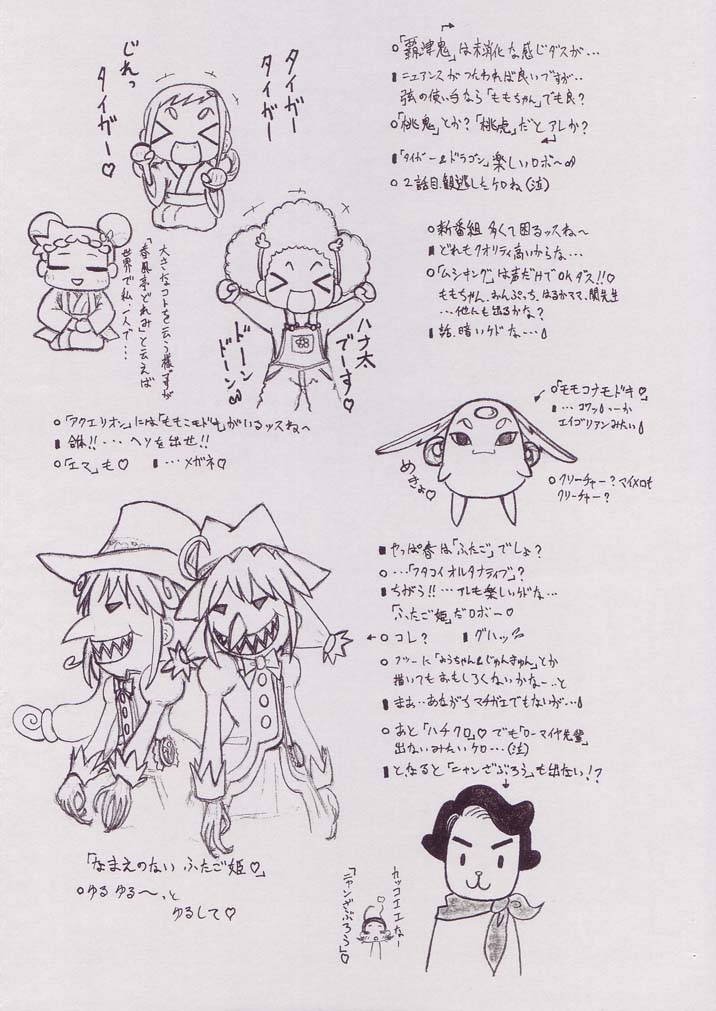 「覇津鬼」は未消化な感じダスが…
ニュアンスがつたわれば良いですが‥
弦の使い手なら「ももちゃん」でも良?
「桃鬼」とか?「桃虎」だとアレか?
「タイガー&ドラゴン」楽しいロボ〜
2話目観逃したケロね(泣)
タイガー
タイガー
じれっ
タイガー♡
大きなコトを云う様ですが
「春風亭どれみ」と云えば
世界で私一人で…
ハナ太
でーす♡
ドーン
ドーン
新番組 多くて困るッスね〜
どれもクオリティ高いからな…
「ムシキング」は声だけでOKダス!!
ももちゃん、おんぷっち、はるかママ、関先生
…他にも出るかな?
話、暗いケドな…
「アクエリオン」には「ももこモドキ」がいるッスね〜
合体!!…ヘソを出せ!!
「エマ」も♡ …メガネ♡
「モモコナモドキ♡」
…コワッ いーか
エイゴリアンみたい
めきょ♡
クリーチャー?マイメロも
クリーチャー?
やっぱ春は「ふたご」でしょ?
…「フタコイ オルタナティブ」?
ちがう!!…アレも楽しいケドな…
「ふたご姫」だロボー♡
コレ? グハッ
フツーに「みうちゃん&じゅんきゅん」とか
描いてもおもしろくないかなー‥と
まぁ‥あながちマチガエでもないが…
あと「ハチクロ」♡でも「ローマイヤ先輩」
出ないみたいケロ…(泣)
と、なると「ニャンざぶろう」も出ない!?
「なまえのない ふたご姫♡」
ゆるゆる〜っと
ゆるして♡
カッコエエなー
「ニャンざぶろう」♡